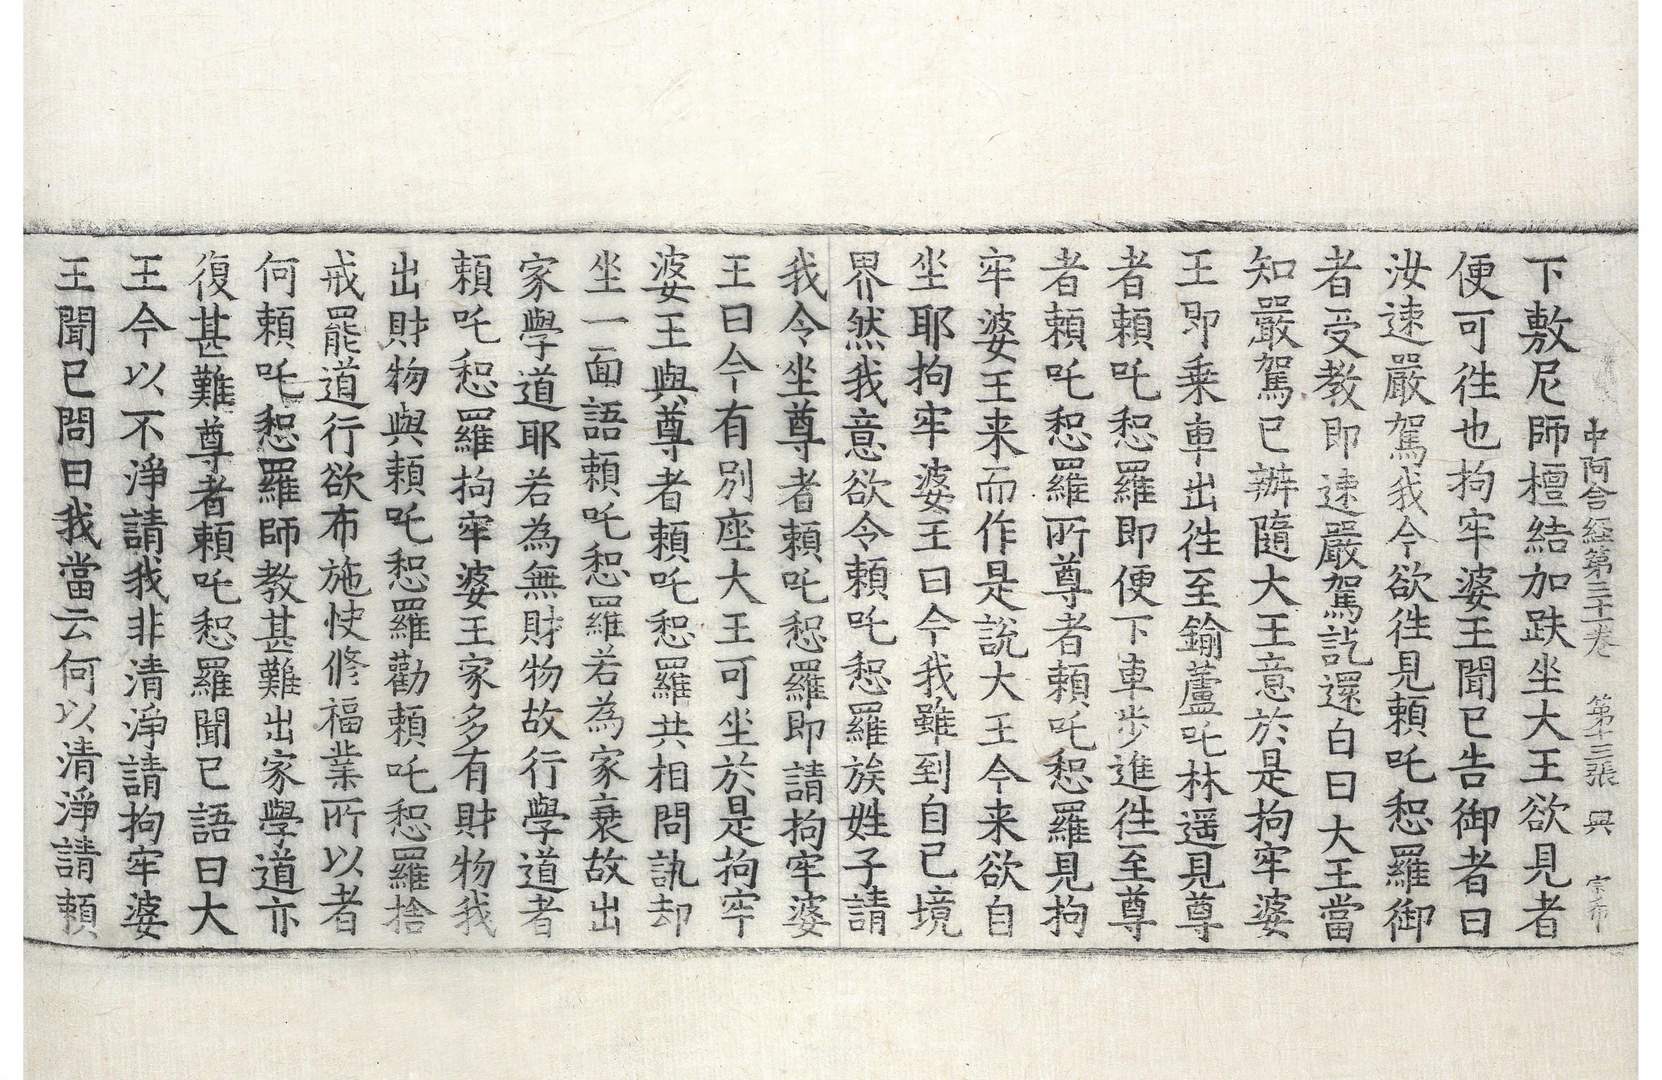 中阿含経第三十一卷 第十三張 興 宗希
下敷尼師檀結加趺坐大王欲見者
便可徃也拘牢婆王聞已告御者曰
汝速嚴駕我今欲徃見賴吒惒羅御
者受教即速嚴駕訖還白曰大王當
知嚴駕已辦隨大王意於是拘牢婆
王即乗車出徃至鍮蘆吒林遥見尊
者賴吒惒羅即便下車步進徃至尊
者賴吒惒羅所尊者賴吒惒羅見拘
牢婆王来而作是說大王今来欲自
坐耶拘牢婆王曰今我雖到自己境
界然我意欲令賴吒惒羅族姓子請
我令坐尊者賴吒惒羅即請拘牢婆
王曰今有別座大王可坐於是拘牢
婆王與尊者賴吒惒羅共相問訊却
坐一面語賴吒惒羅若為家衰故出
家學道耶若為無財物故行學道者
賴吒惒羅拘牢婆王家多有財物我
出財物與賴吒惒羅勸賴吒惒羅捨
戒罷道行欲布施快修福業所以者
何賴吒惒羅師教甚難出家學道亦
復甚難尊者賴吒惒羅聞已語曰大
王今以不淨請我非清淨請拘牢婆
王聞已問曰我當云何以清淨請賴